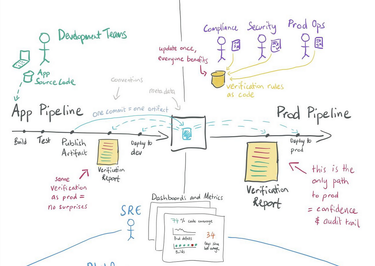 Development Teams
App
Source Code
Compliance
Security
Prod Ops
update once,
everyone benefits
verification rules
as code
conventions
metadata
App Pipeline
one commit = one artifact
Prod Pipeline
Build
Test
Publish
Artifact
Deploy to
dev
Deploy to
prod
Verification
Report
same
verification
as prod =
no surprises
Verification
Report
this is the
only path
to prod
= confidence
& audit tail
Dashboards and Metrics
SRE
74% code coverage
34
Builds